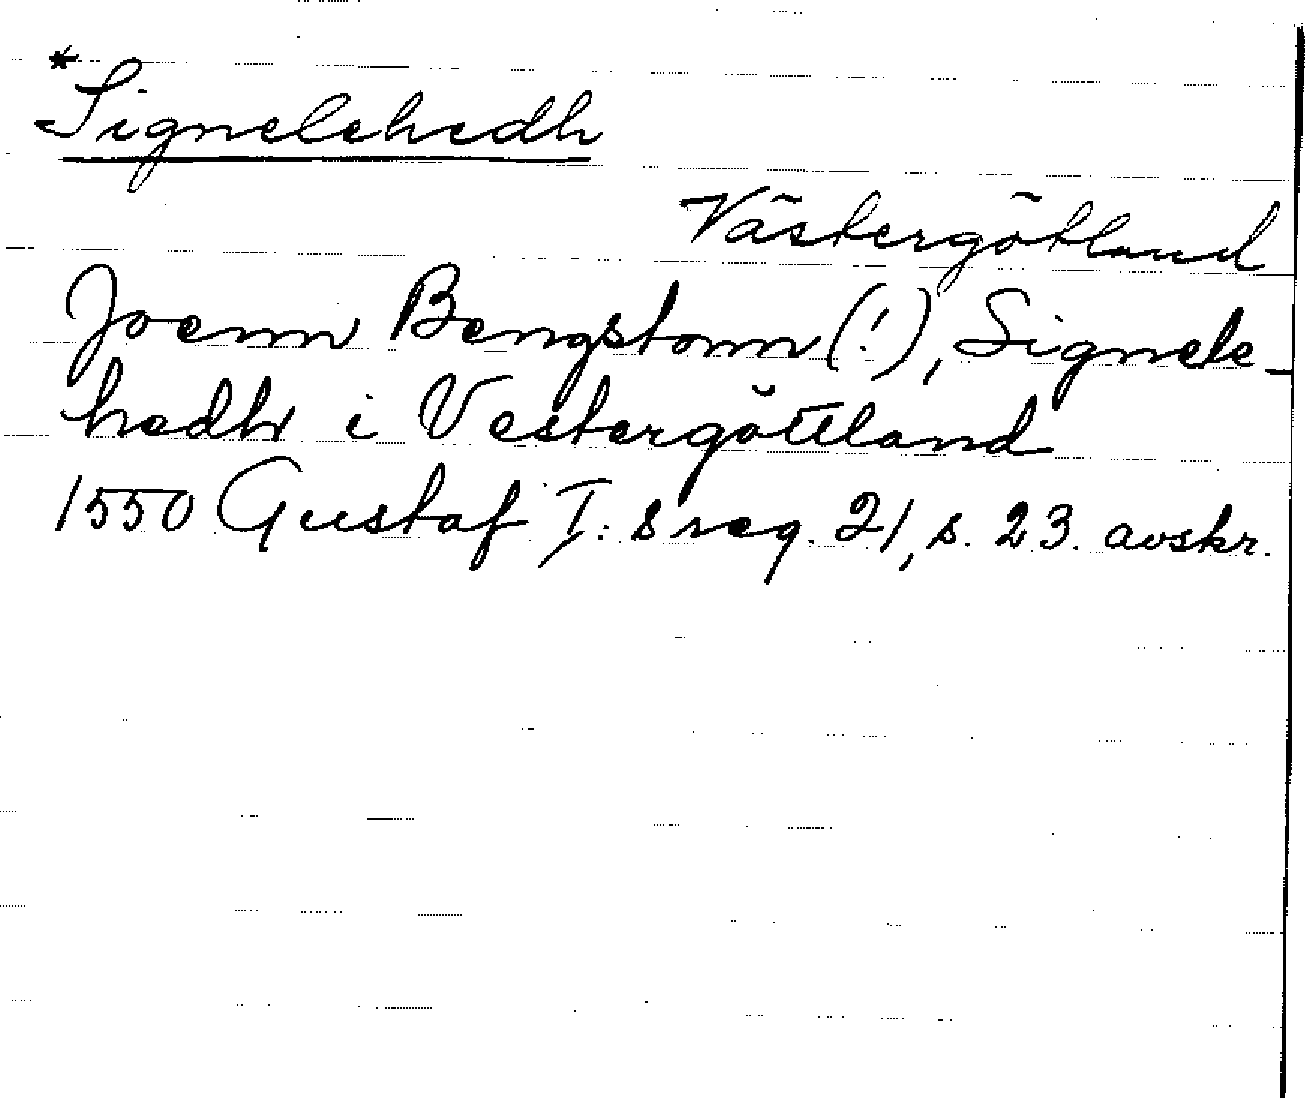 *Signelehedh
Västergötland
Joenn Bengstonn (!), Signele-
hedh i Vestergöttland
1550 Gustaf I:s reg. 21, s. 23. avskr.